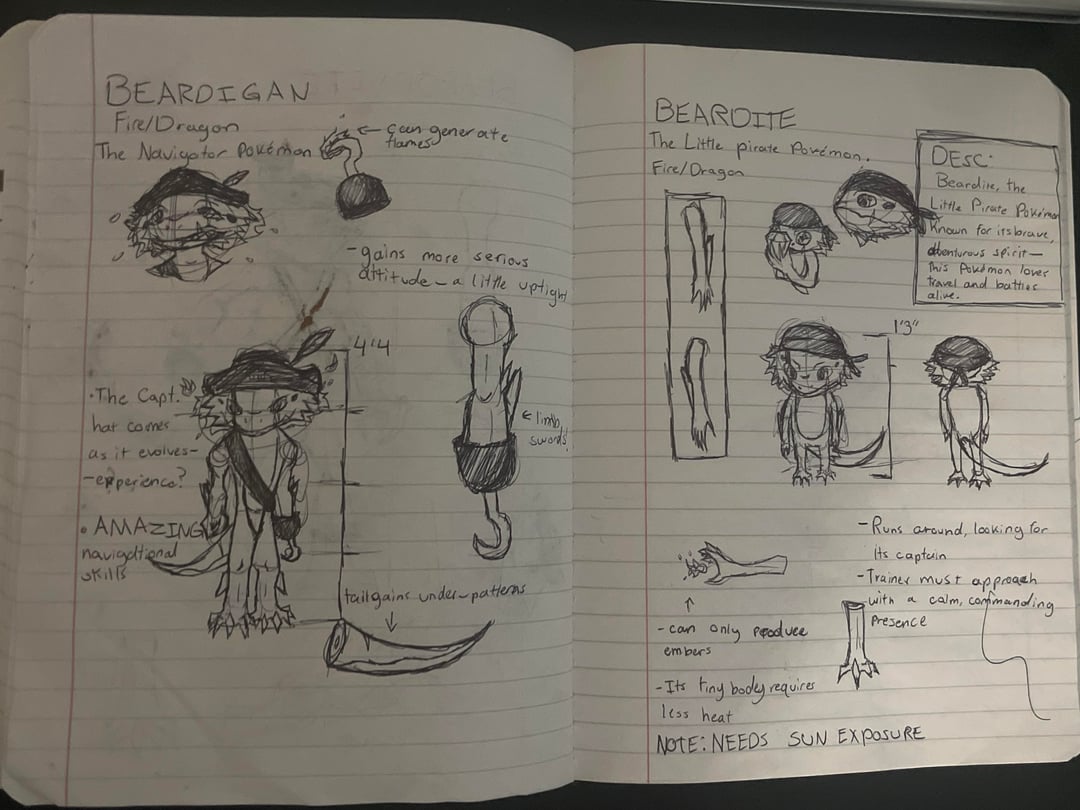 BEARDIGAN
Fire/Dragon
The Navigator Pokémon
← can generate
flames
-gains more serious
attitude - a little uptight
4'4
•The Capt.
hat comes
as it evolves-
-experience?
← limb
swords!
• AMAZING
navigational
skills
tail gains under-patterns
BEARDITE
The Little pirate Pokémon.
Fire/Dragon
DESC:
Beardite, the
Little Pirate Pokémon
Known for its brave,
adventurous spirit—
this Pokémon loves
travel and battles
alive.
1'3"
-Runs around, looking for
its captain
-Trainer must approach
with a calm, commanding
presence
-can only produce
embers
-Its tiny body requires
less heat
NOTE: NEEDS SUN EXPOSURE